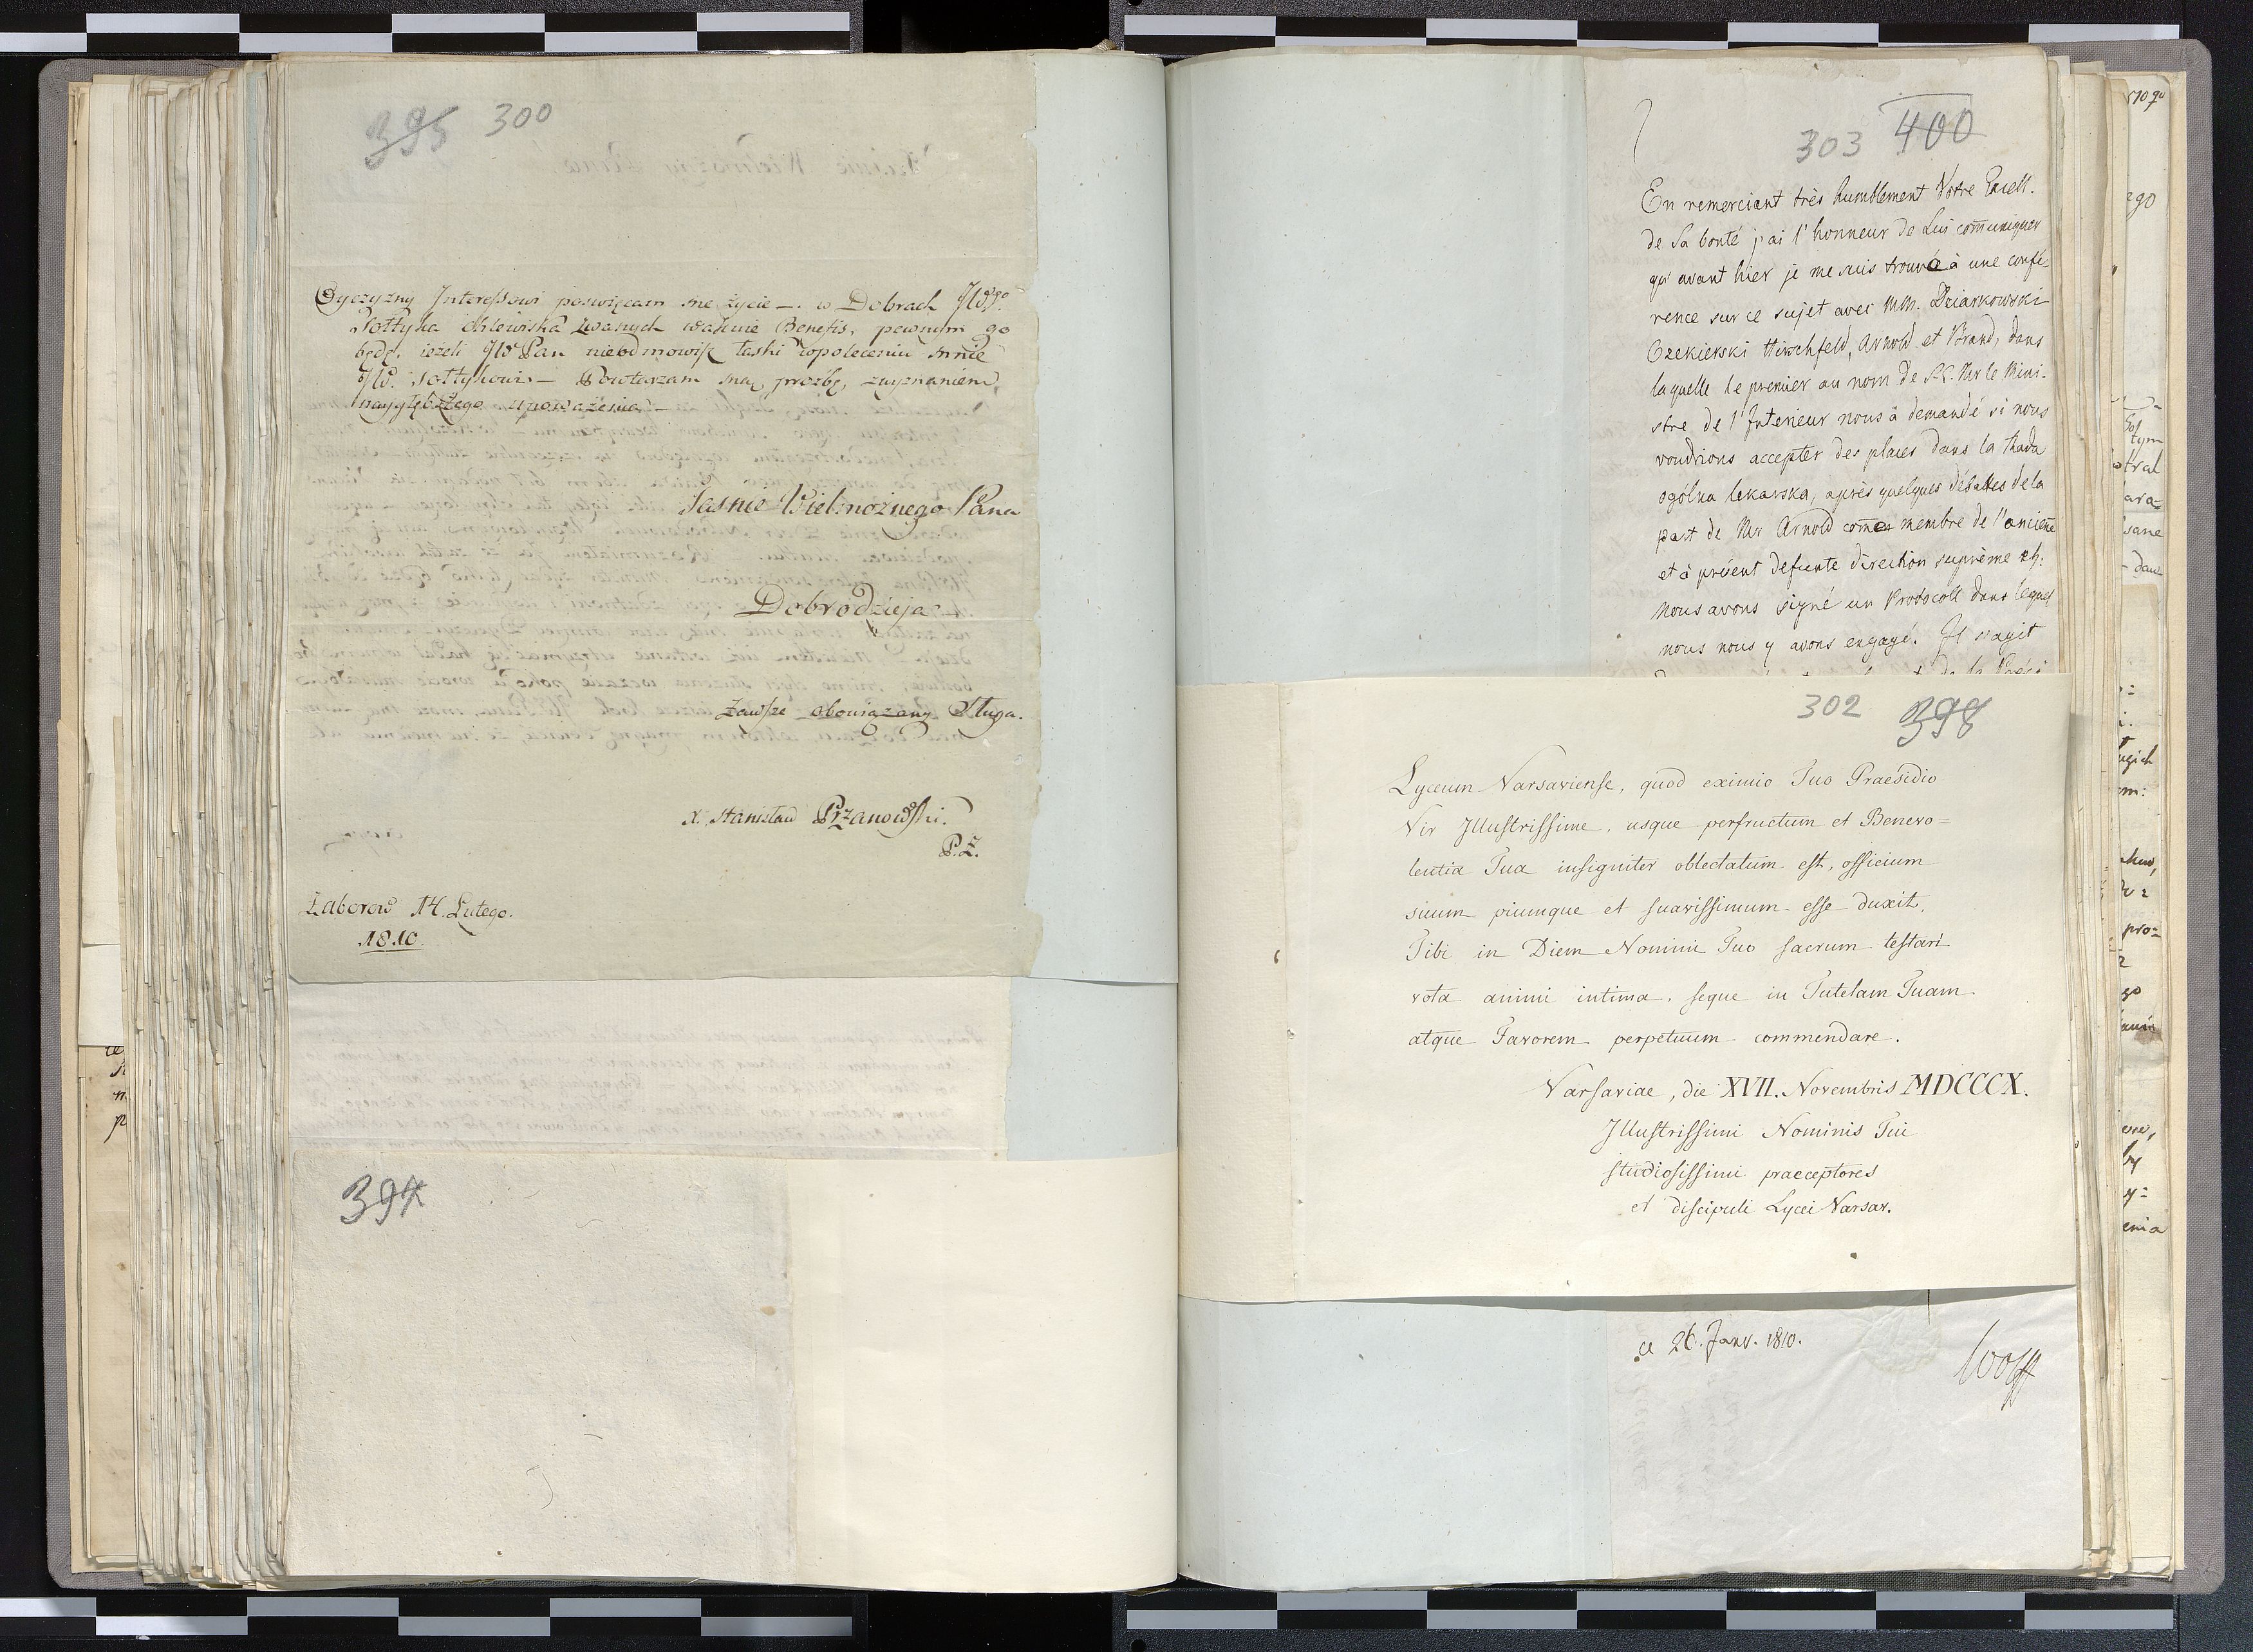 395 300
Oyczyzny Interessowi poswięcam me życie —. w Dobrach JWgo
Sołtyka Chlewiska zwanych wakuie Benefis, pewnym go
będę, ieżeli JW Pan nieodmowisz łaski w poleceniu mnie
JW. Sołtykowi — Powtarzam mą proźbę, z wyznaniem
naygłębszego upoważenia —
Jaśnie Wielmożnego Pana
Dobrodzieja
Zawsze obowiązany Sługa.
X. Stanisław Przanowski.
P.Z.
Zaborow 14. Lutego.
1810.
394
303 400
En remerciant très humblement Votre Excell.
de Sa bonté j'ai l'honneur de Lui com̄uniquer
qu'avant hier je me suis trouvé à une confé-
rence sur ce sujet avec MM. Dziarkowski
Czekierski Hirschfeld, Arnold et Brand, dans
laquelle le premier au nom de S.E. Mr le Mini-
stre de l'Interieur nous à demandé si nous
voudrions accepter des places dans la Rada
ogólna lekarska, après quelques débattes de la
part de Mr Arnold com̄e membre de l'ancien̄e
et à présent defunte direction suprème
nous avons signé un Protocoll dans lequel
nous nous y avons engagé. Il s'agit
302 398
Lyceum Varsaviense, quod eximio Tuo Praesidio
Vir Illustrissime, usque perfructum et Benevo=
lentia Tua insigniter oblectatum est, officium
suum piumque et suavissimum esse duxit,
Tibi in Diem Nomini Tuo sacrum testari
vota animi intima, seque in Tutelam Tuam
atque Favorem perpetuum commendare.
Varsaviae, die XVII. Novembris MDCCCX.
Illustrissimi Nominis Tui
studiosissimi praeceptores
et discipuli Lycei Varsav.
ce 26. Janv. 1810.
Wolff